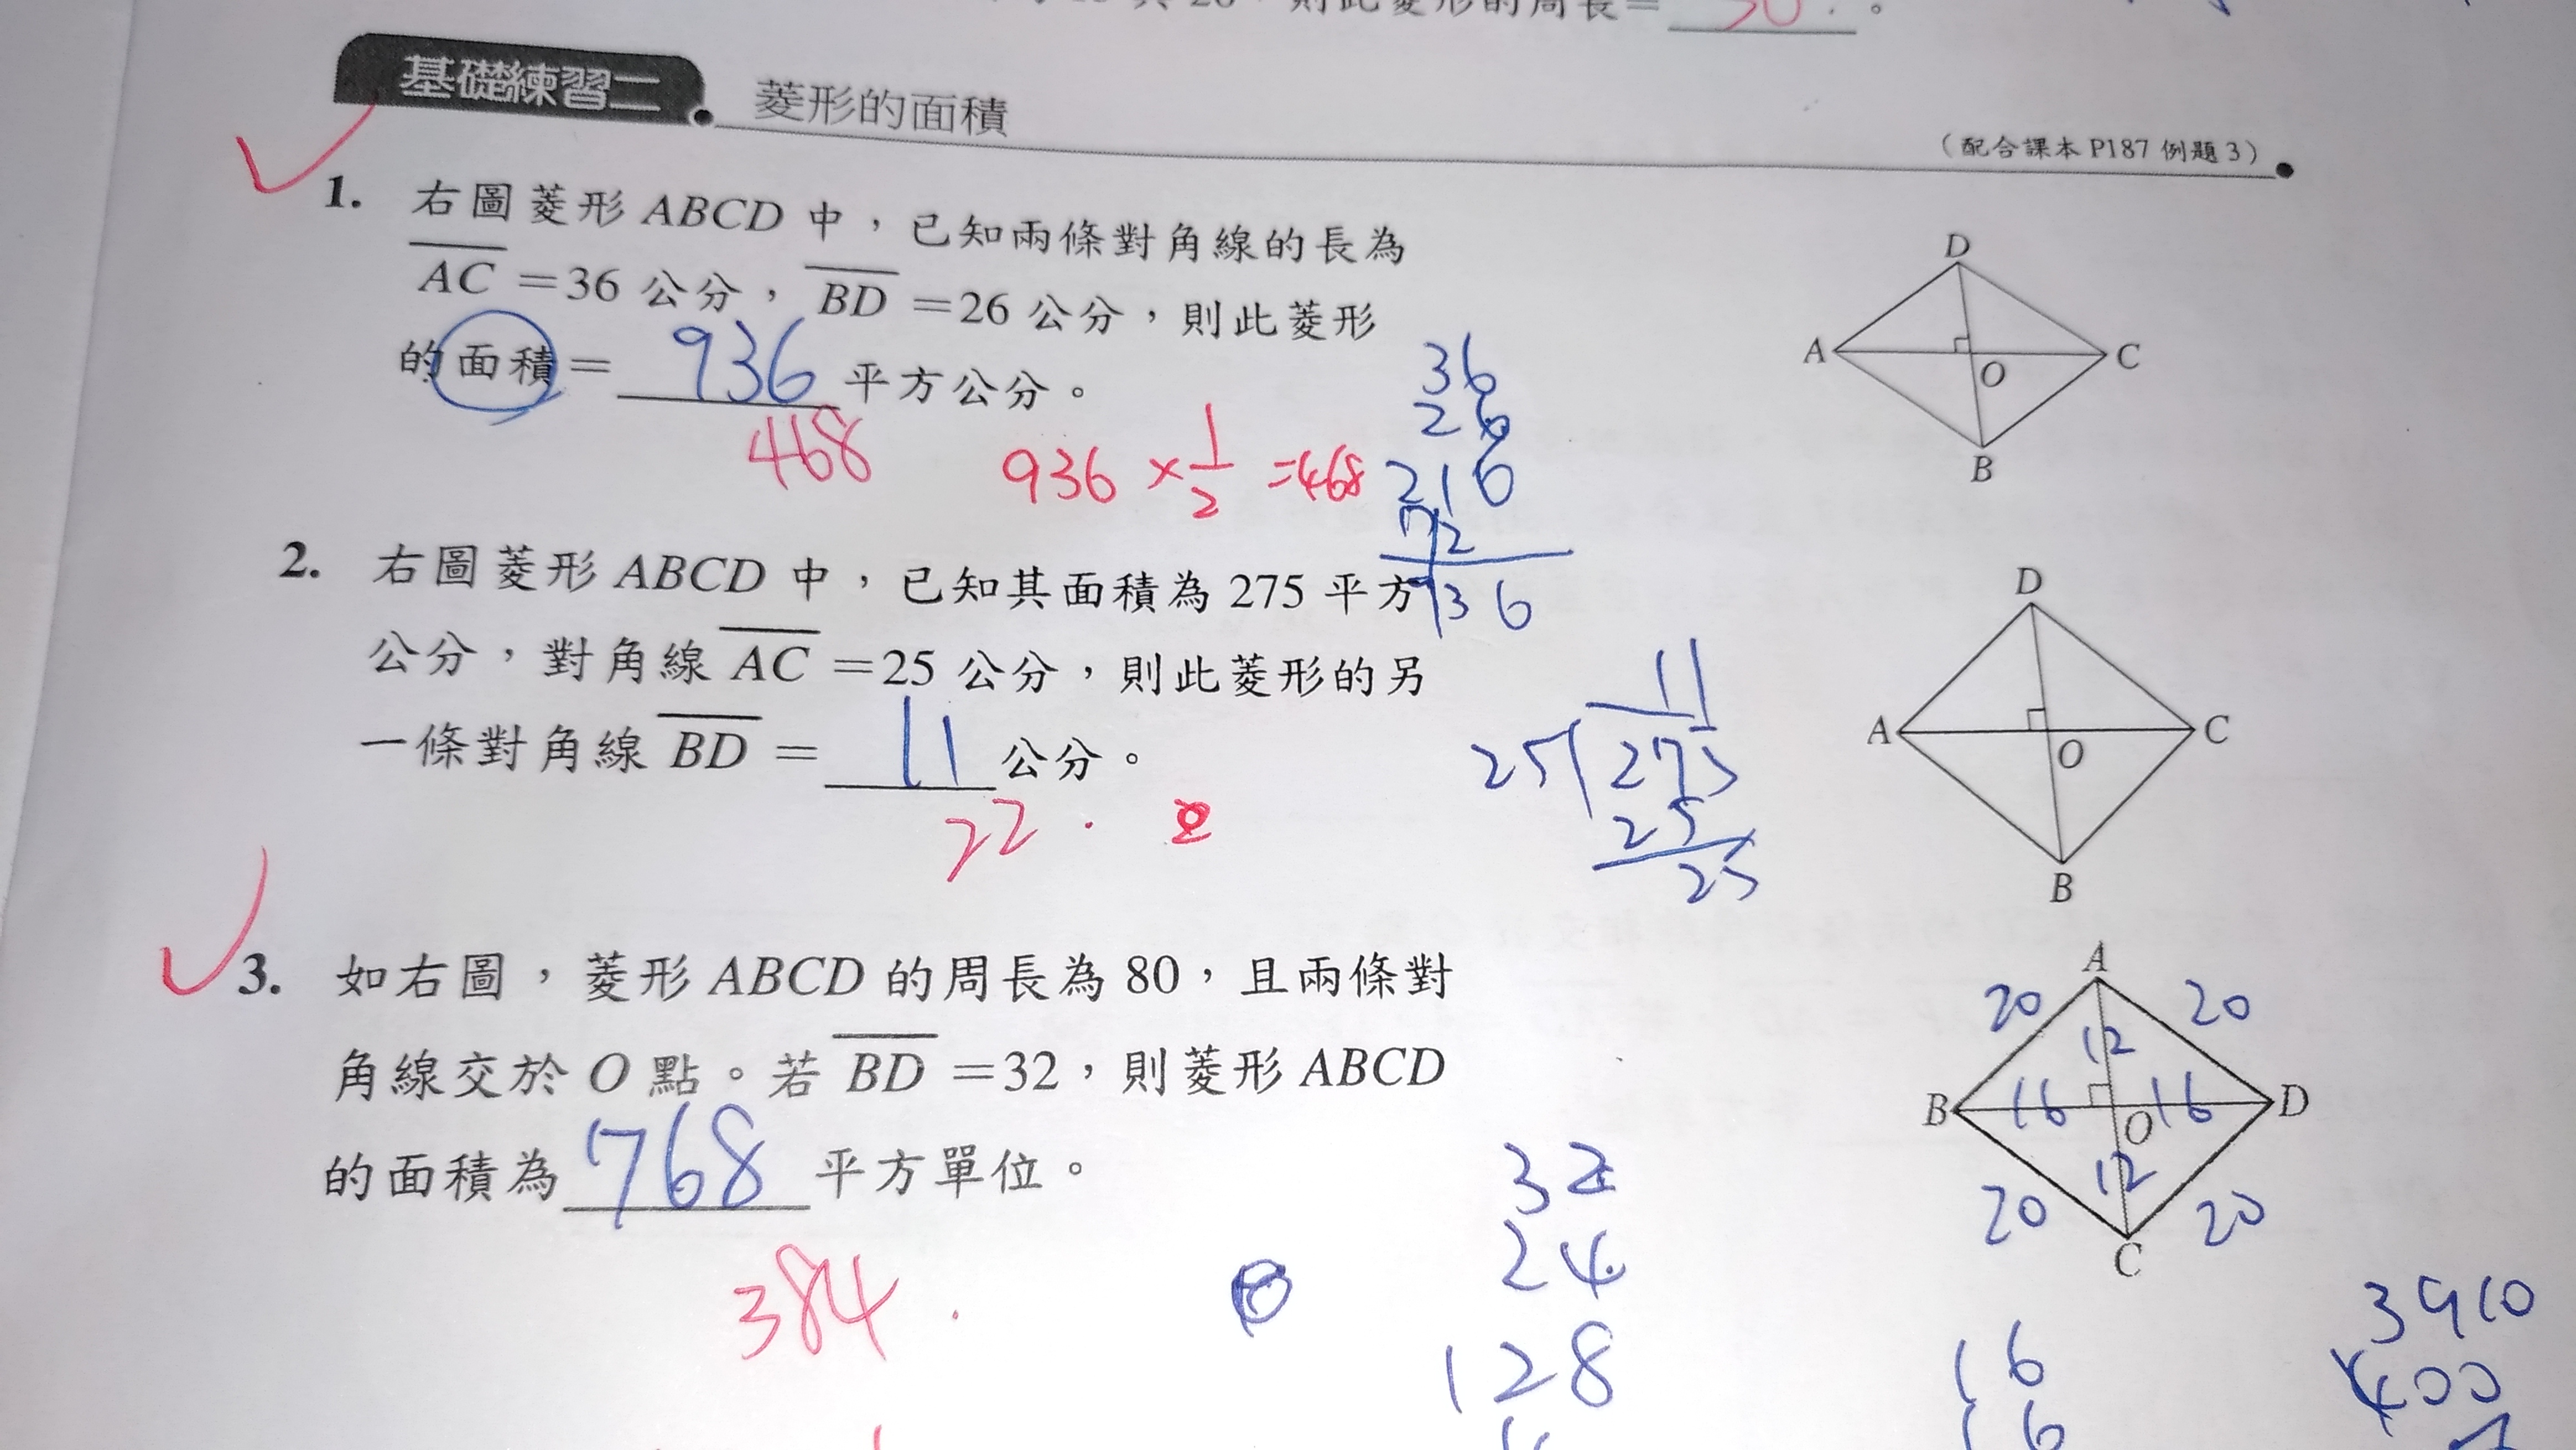 則此菱形的周長=
基礎練習二 菱形的面積
(配合課本 P187 例題 3)
1. 右圖菱形 ABCD 中，已知兩條對角線的長為
AC =36 公分，BD =26 公分，則此菱形
的面積= 936 平方公分。
468
936 × 1/2 =468
36
26
216
72
936
D
A
C
O
B
2. 右圖菱形 ABCD 中，已知其面積為 275 平方
公分，對角線 AC =25 公分，則此菱形的另
一條對角線 BD = 11 公分。
22.
11
25 275
25
25
D
A
C
O
B
3. 如右圖，菱形 ABCD 的周長為 80，且兩條對
角線交於 O 點。若 BD =32，則菱形 ABCD
的面積為 768 平方單位。
384.
32
24
128
A
20 20
12
B 16 O 16 D
12
20 20
C
16
16
3910
400